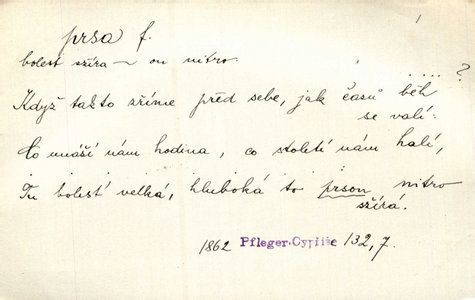 prsa f.
bolest szíra ~ on nitro.
.... ?
Když takto zříme před sebe, jak časů běh
se valí:
Co unáší nám hodina, co století nám halí,
Tu bolesť velká, hluboká to prson nitro
szírá.
1862 Pfleger-Cypřiše 132, 7.